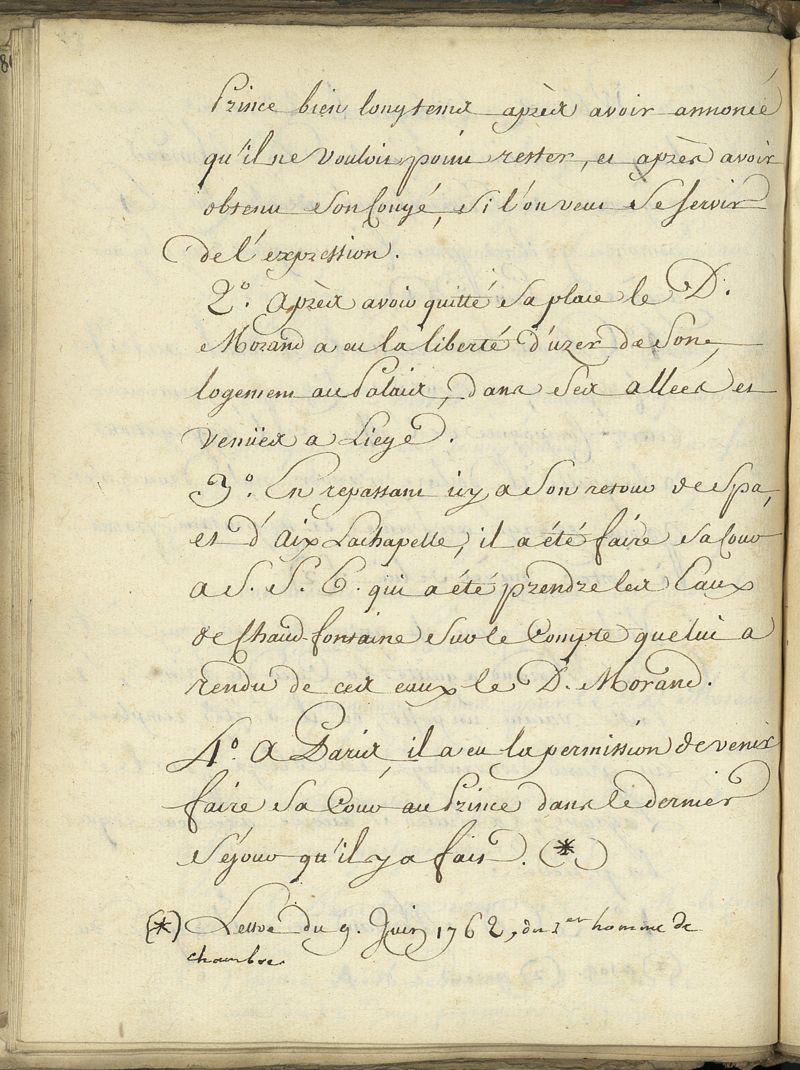 Prince bien longtems après avoir annoncé
qu'il ne vouloit point rester, et après avoir
obtenu son congé, si l'on veut se servir
de l'expression.
2.° Après avoir quitté sa place le D.
Morand a eu la liberté d'uzer de son
logement au Palais, dans ses allées et
venües a Liege.
3.° En repassant icy a son retour de Spa,
et d'Aix Lachapelle, il a été faire sa Cour
a S. S. E. qui a été prendre les Eaux
de Chaud-fontaine sur le Compte que lui a
rendu de ces eaux le D. Morand.
4.° A Paris, il a eu la permission de venir
faire sa Cour au Prince dans le dernier
séjour qu'il y a fait. (*)
(*) Lettre du 9. Juin 1762, du 1er homme de
chambre